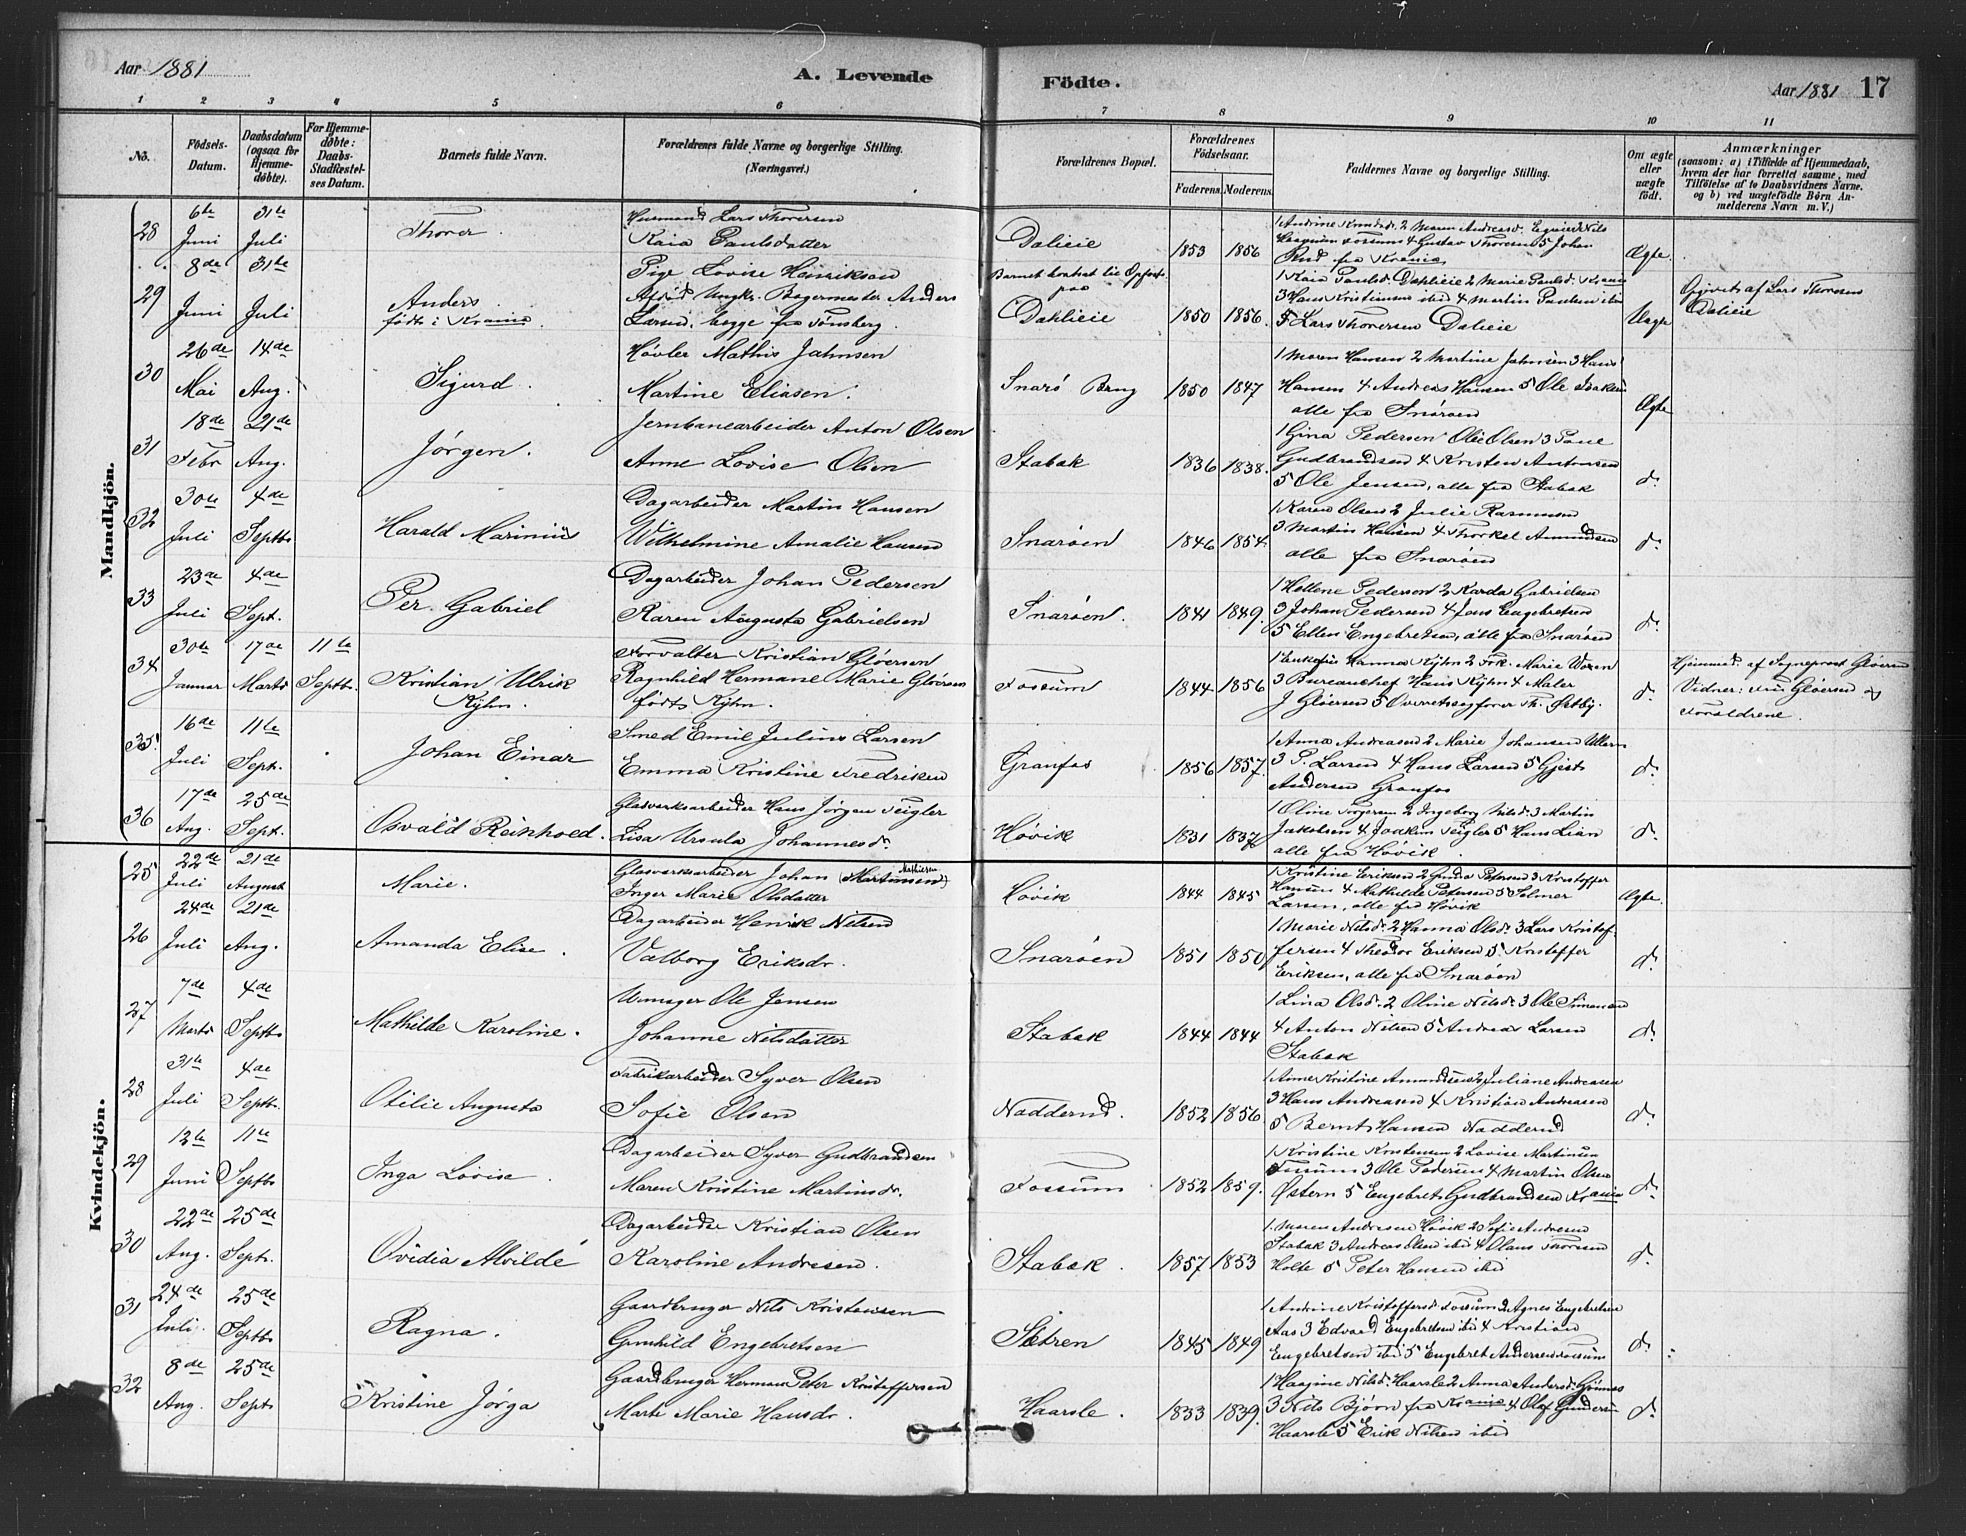 Aar 1881
A. Levende
Födte.
Aar 1881
17
1 2 3 4 5 6 7 8 9 10 11
No.
Födsels-
Datum.
Daabsdatum
(ogsaa for
Hjemme-
döbte).
For Hjemme-
döbte:
Daabs-
Stadfæstel-
ses Datum.
Barnets fulde Navn.
Forældrenes fulde Navne og borgerlige Stilling.
(Næringsvei.)
Forældrenes Bopæl.
Forældrenes
Födselsaar.
Faderens. Moderens.
Faddernes Navne og borgerlige Stilling.
Om ægte
eller
uægte
født.
Anmærkninger
(saasom: a) i Tilfælde af Hjemmedaab,
hvem der har forrettet samme, med
Tilföielse af to Daabsvidners Navne,
og b) ved uægtefödte Börn An-
melderens Navn m. V.)
Mandkjön.
28
6te Juni
31te Juli
Thorer
Husmand Lars Thoresen
Kaia Paulsdatter
Dalieie
1853 1856
Rud fra Krania
Ægte.
29
8de Juni
31te Juli
Anders
født i Krania.
Pige Lovise Henriksen
Afsd Ungkr. Bagermester Anders
Larsen, begge fra Tønsberg.
Barnet bortsat til Opfostr
paa
Dahlieie
1850 1856.
1 Kaia Paulsd. Dahlieie 2 Marie Paulsd. Krania
3 Hans Kristiansen ibid 4 Martin Paulsen ibid
5 Lars Thorersen Dalieie
Uægte
Opgivet af Lars Thoresen
Dalieie
30
26de Mai
14de Aug.
Sigurd.
Høvler Mathis Jahnsen
Martine Eliasen.
Snarö Brug
1850 1847
1 Maren Hansen 2 Martine Jahnsen 3 Hans
Hansen 4 Andreas Hansen 5 Ole Isaksen
alle fra Snaröen
Ægte
31
18de Febr
21de Aug.
Jörgen.
Jernbanearbeider Anton Olsen
Anne Lovise Olsen
Stabæk
1836 1838.
1 Gina Pedersen Olsen 3 Pane
Gudbrandsen 4 Kristen Antonsen
5 Ole Jensen, alle fra Stabæk
do.
32
30te Juli
4de Septbr
Harald Marinius
Dagarbeider Martin Hansen
Wilhelmine Amalie Hansen
Snaröen
1846 1854.
1 Karen Olsen 2 Julie Rasmussen
3 Martin Hansen 4 Thorkel Amundsen
alle fra Snaröen
do.
33
23de Juli
4de Sept.
Per Gabriel
Dagarbeider Johan Pedersen
Karen Augusta Gabrielsen
Snaröen.
1841 1849.
1 Hellene Pedersen 2 Karda Gabrielsen
3 Johan Pedersen 4 Jens Engebretsen
5 Ellen Engebretsen, alle fra Snaröen
do.
34
30te Januar
17de Marts
11te Septbr.
Kristian Ulrik
Kyhn.
Forvalter Kristian Glöersen
Ragnhild Hermane Marie Glöersen
født Kyhn.
Fossum
1844 1856
1 Enkefru Hanna Kyhn 2 Frk. Marie
3 Bureauchef Hans Kyhn 4 Maler
J Glöersen 5 Overretssagfører Th. Østby.
do.
Hjemmed. af Sogneprest Glöersen
Vidner: Fru Glöersen og
Forældrene.
35
16de Juli
11te Sept.
Johan Einar
Smed Emil Julius Larsen
Emma Kristine Fredriksen
Granfos
1856 1857.
1 Anna Andreasen 2 Marie Johansen Ullern
3 P. Larsen 4 Hans Larsen 5 Gjest
Andersen Granfos
do.
36
17de Aug.
25de Sept.
Osvald Reinhold.
Glasværksarbeider Hans Jörgen Teigler
Lisa Ursula Johannesdr.
Hövik
1831 1837
1 Oline Torgersen 2 Ingeborg Nilsd. 3 Martin
Jakobsen 4 Joakim Teigler 5 Hans Lian
alle fra Hövik.
do.
Kvindekjön.
25
22de Juli
21de August
Marie.
Glasværksarbeider Johan (Martinsen) Mathiesen
Inger Marie Olsdatter
Hövik
1844 1845
1 Kristine Eriksen 2 Gunda Petersen 3 Kristoffer
Hansen 4 Mathilde Petersen 5 Selmer
Larsen, alle fra Hövik
Ægte.
26
24de Juli
21de Aug.
Amanda Elise.
Dagarbeider Henrik Nilsen
Valborg Eriksdr.
Snaröen
1851 1850
1 Marie Nilsd. 2 Hanna Olsd. 3 Lars Kristof-
fersen 4 Theodor Eriksen 5 Kristoffer
Eriksen, alle fra Snaröen
do.
27
7de Marts
4de Septbr
Mathilde Karoline.
Urmager Ole Jensen
Johanne Nilsdatter
Stabæk
1844 1844
1 Lina Olsd. 2 Oline Nilsd. 3 Ole Simensen
4 Anton Nilsen 5 Andreas Larsen
Stabæk
do.
28
31te Juli
4de Septbr.
Otilie Augusta
Fabrikarbeider Syver Olsen
Sofie Olsen
Nadderud.
1852 1856.
1 Anne Kristine Amundsen 2 Juliane Andreasen
3 Hans Andreasen 4 Kristian Andreasen
5 Bernt Hansen Nadderud
do.
29
12te Juni
11te Septbr
Inga Lovise.
Dagarbeider Syver Gudbrandsen
Maren Kristine Martinsdr.
Fossum
1852 1859.
1 Kristine Kristensen 2 Lovise Martinsen
Fossum 3 Ole Pedersen 4 Martin Olsen
Østern 5 Engebret Gudbrandsen Krania
do.
30
22de Aug.
25de Sept.
Ovidia Alvilde
Dagarbeider Kristian Olsen
Karoline Andresen.
Stabæk.
1857 1853
1. Maren Andresen Hövik 2 Sofie Andresen
Stabæk 3 Andreas Olsen ibid 4 Olaus Thoresen
Holte 5 Peter Hansen ibid
do.
31
24de Juli.
25de Septbr
Ragna.
Gaardbruger Nils Kristensen
Gunhild Engebretsen
Sætren
1845 1849
1 Andrine Kristoffersd. Fossum 2 Agnes Engebretsen
Aas 3 Edvard Engebretsen ibid 4 Kristian
Engebretsen ibid 5 Engebret Andersen Fossum
do.
32
8de Aug.
25de Sept
Kristine Jörga
Gaardbruger Herman Peter Kristoffersen
Marte Marie Hansdr.
Haarsle.
1833 1839.
1 Haagine Nilsd. Haarsle 2 Anna Andersd. Grinnas
3 Nils Björn fra Krania 4 Olaf Gundersen
Haarsle 5 Erik Nilsen ibid
do.